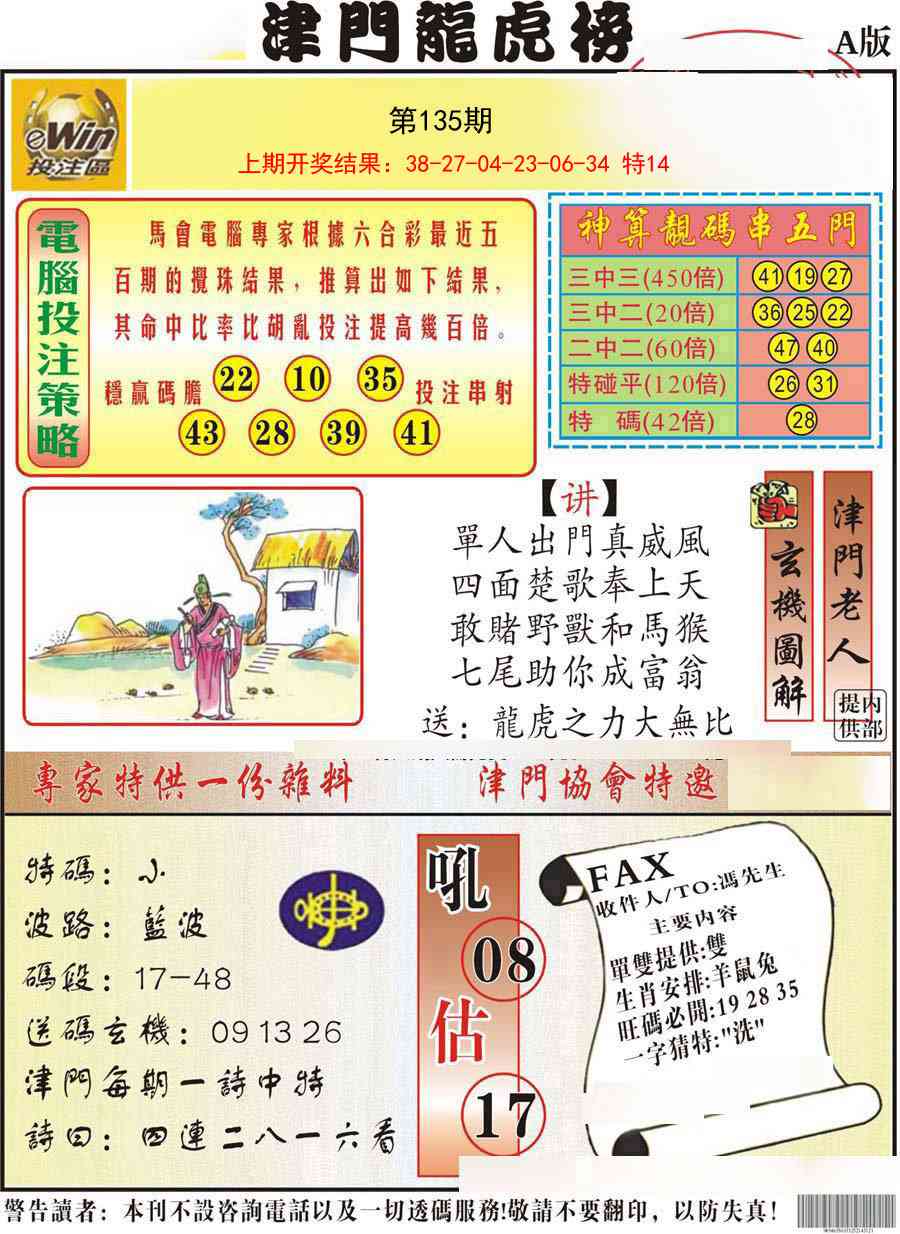 津門龍虎榜
A版
eWin
投注區
第135期
上期开奖结果：38-27-04-23-06-34 特14
電腦投注策略
馬會電腦專家根據六合彩最近五
百期的攪珠結果，推算出如下結果，
其命中比率比胡亂投注提高幾百倍。
穩贏碼膽 22 10 35 投注串射
43 28 39 41
神算靚碼串五門
三中三(450倍) 41 19 27
三中二(20倍) 36 25 22
二中二(60倍) 47 40
特碰平(120倍) 26 31
特 碼(42倍) 28
【讲】
單人出門真威風
四面楚歌奉上天
敢賭野獸和馬猴
七尾助你成富翁
送：龍虎之力大無比
玄機圖解
津門老人
内部提供
專家特供一份雜料
津門協會特邀
特碼：小
波路：藍波
碼段：17-48
送碼玄機：09 13 26
津門每期一詩中特
詩曰：四連二八一六看
吼
08
估
17
FAX
收件人/TO:馮先生
主要内容
單雙提供:雙
生肖安排:羊鼠兔
旺碼必開:19 28 35
一字猜特:"洗"
警告讀者：本刊不設咨詢電話以及一切透碼服務!敬請不要翻印，以防失真!